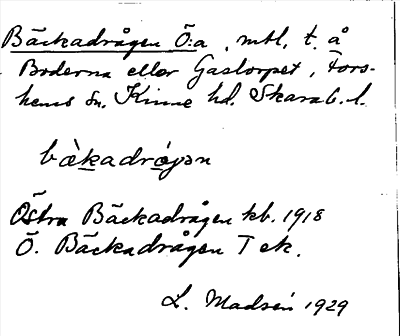 Bäckadrågen Ö:a, mtl, t. å
Boderna eller Gastorpet, Fors-
hems sn. Kinne hd. Skarab. l.
bàkadrågən
Östra Bäckadrågen kb. 1918
Ö. Bäckadrågen T ek.
L. Madsén 1929